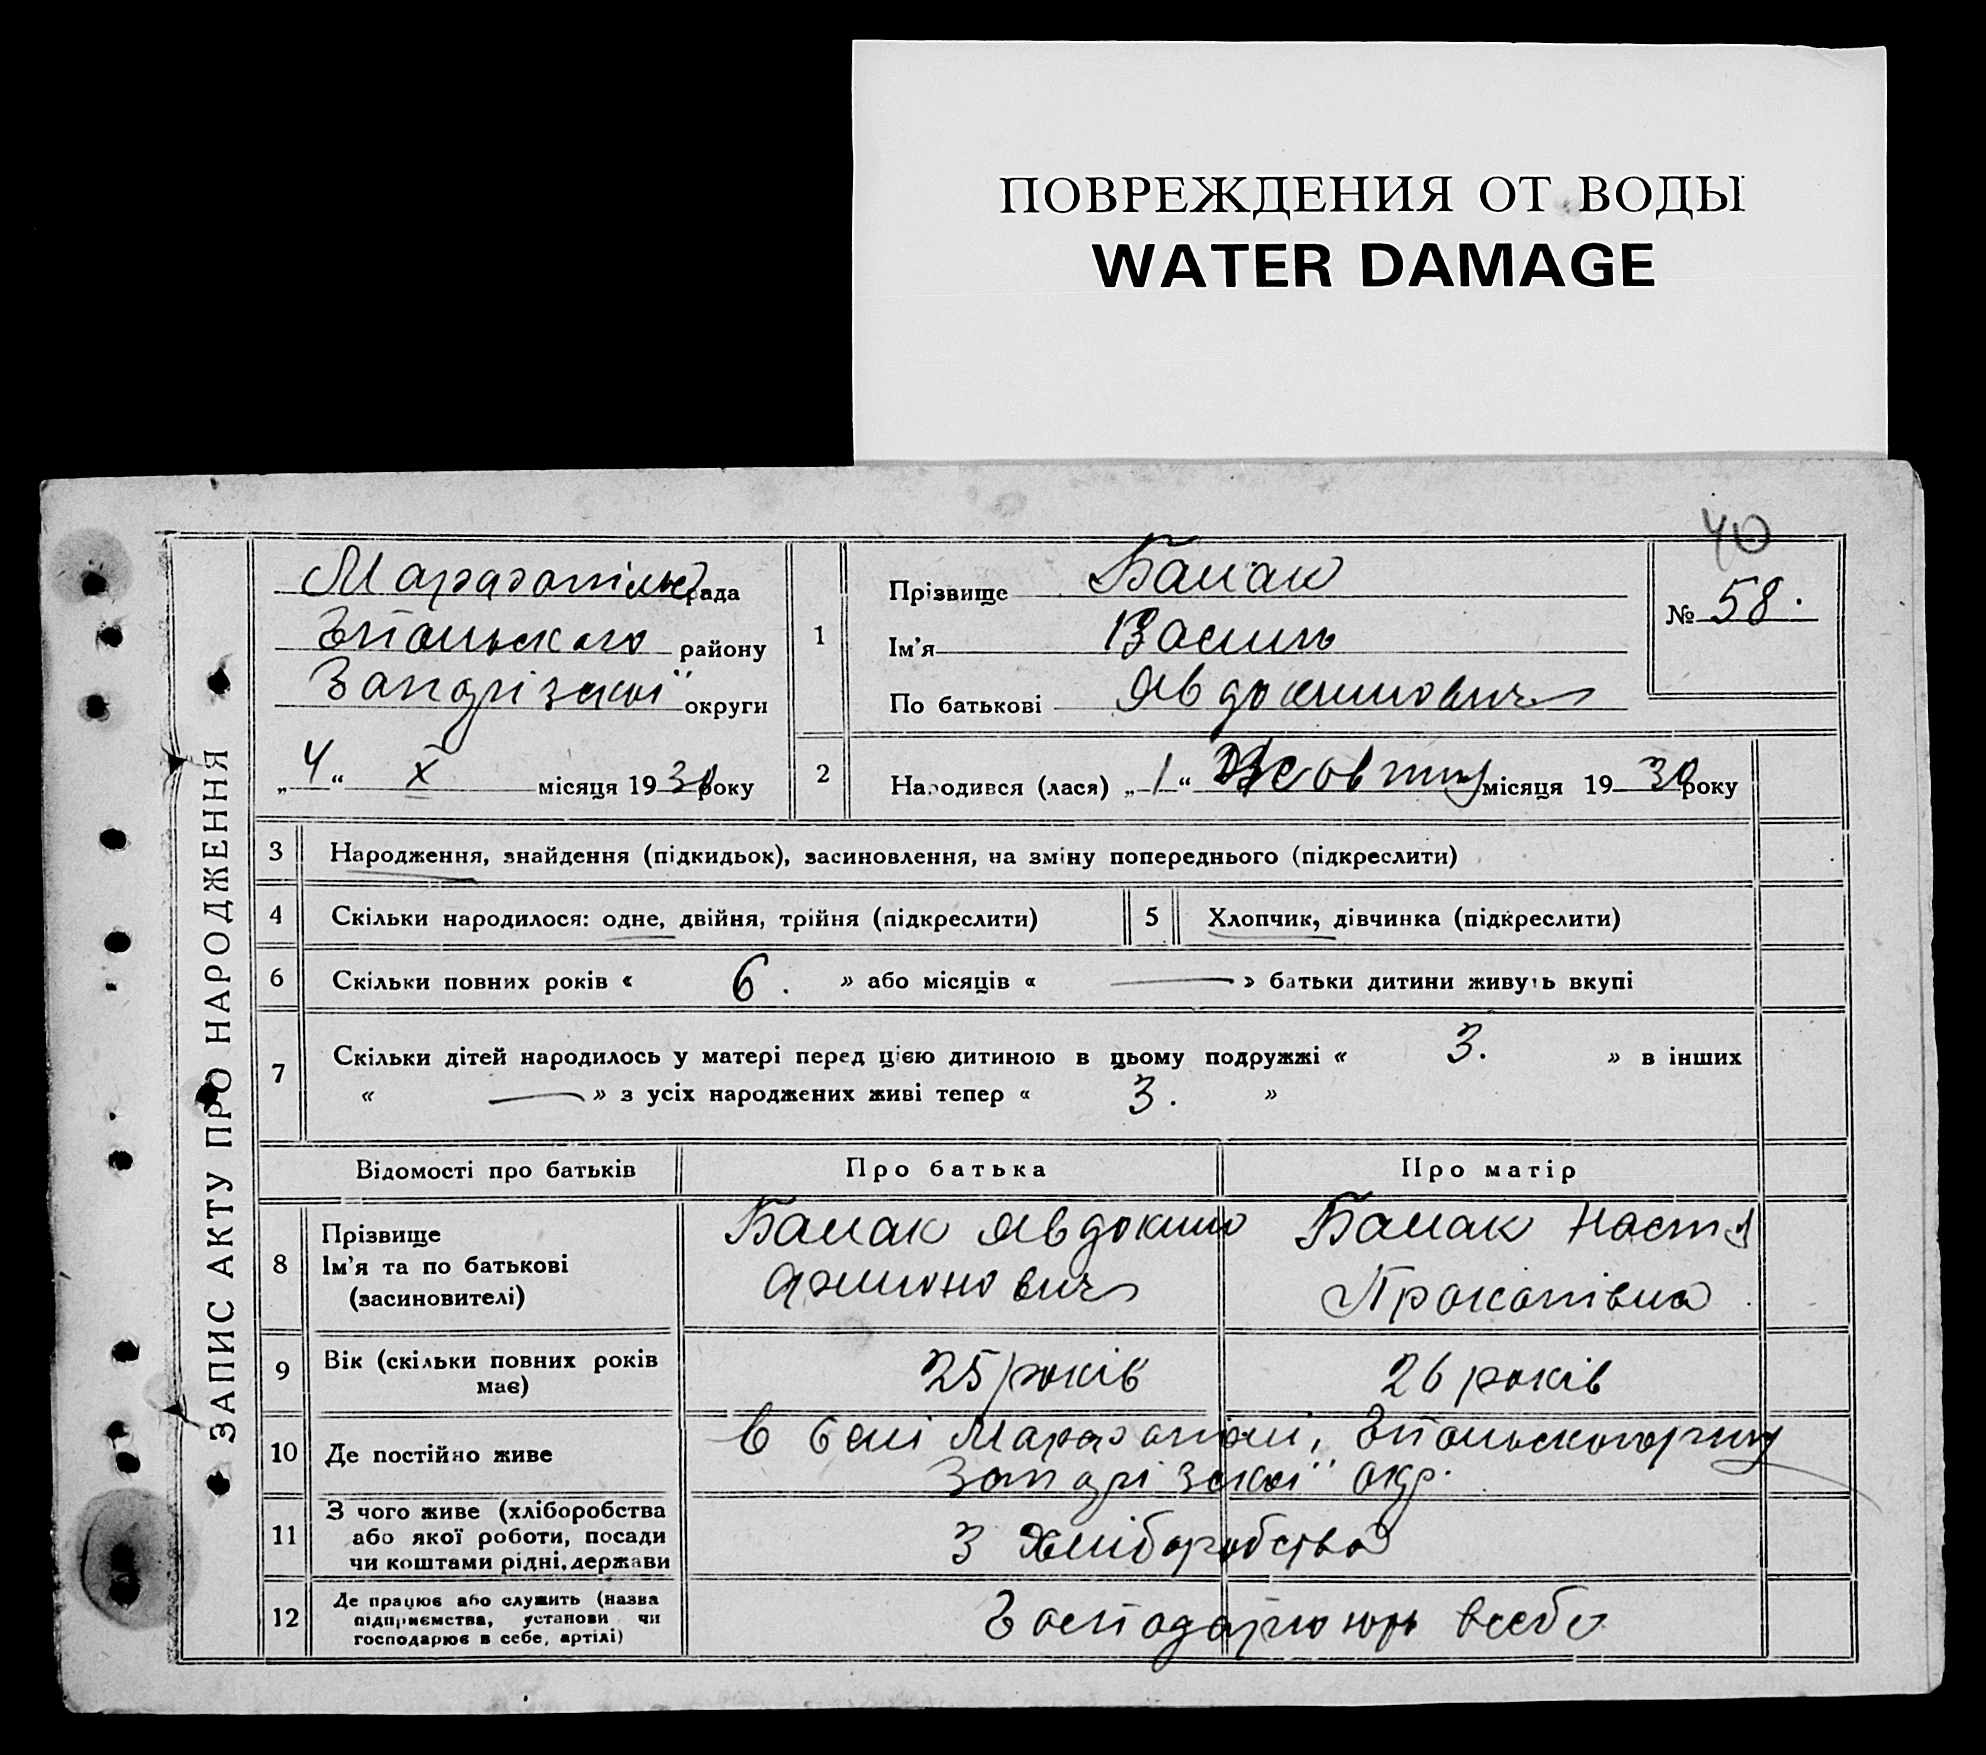 ПОВРЕЖДЕНИЯ ОТ ВОДЫ
WATER DAMAGE
40
ЗАПИС АКТУ ПРО НАРОДЖЕННЯ
рада
району
округи
„4“ X місяця 1930 року
1
Прізвище
Ім'я Василь
По батькові Явдокимович
№ 58.
2
Народився (лася) „1“ Жовтня місяця 1930 року
3 Народження, знайдення (підкидьок), засиновлення, на зміну попереднього (підкреслити)
4 Скільки народилося: одне, двійня, трійня (підкреслити)
5 Хлопчик, дівчинка (підкреслити)
6 Скільки повних років « 6. » або місяців « — » батьки дитини живуть вкупі
7 Скільки дітей народилось у матері перед цією дитиною в цьому подружжі « 3. » в інших
« — » з усіх народжених живі тепер « 3. »
Відомості про батьків
Про батька
Про матір
8
Прізвище
Ім'я та по батькові
(засиновителі)
Явдоким
Настя
Прокопівна
9
Вік (скільки повних років
має)
25 років
26 років
10 Де постійно живе
в селі
окр.
11
З чого живе (хліборобства
або якої роботи, посади
чи коштами рідні, держави
З хліборобства
12
Де працює або служить (назва
підприємства, установи чи
господарює в себе, артілі)
Господарюють в себе